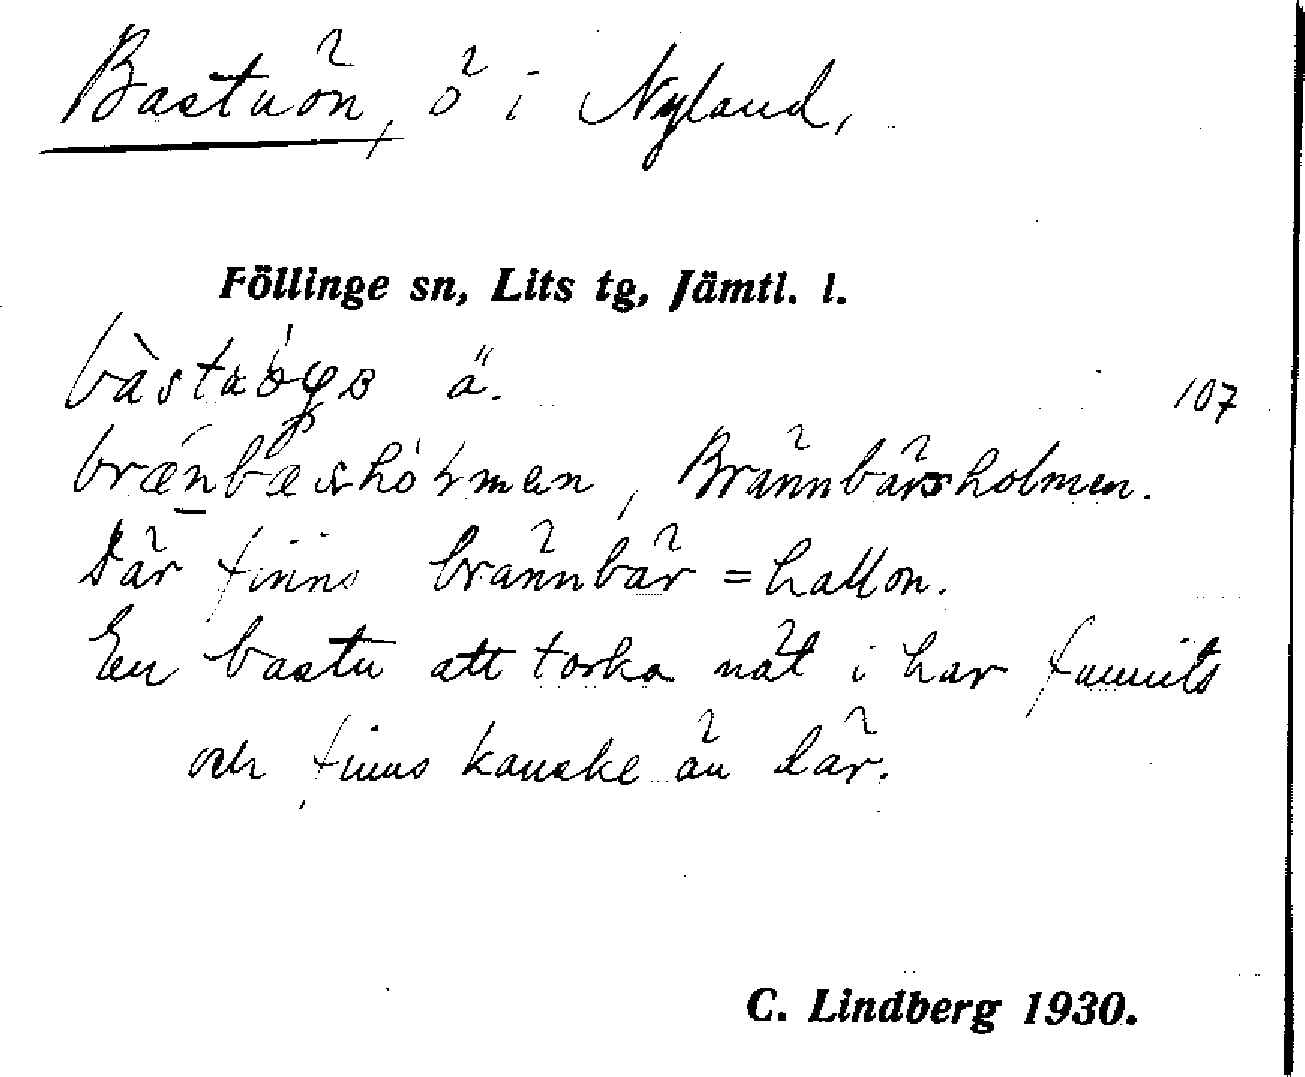 Bastuön, ö i Nyland,
Föllinge sn, Lits tg, Jämtl. l.
ä.
107
Brännbärsholmen.
Där finns brännbär = hallon.
En bastu att torka nät i har funnits
och finns kanske än där.
C. Lindberg 1930.